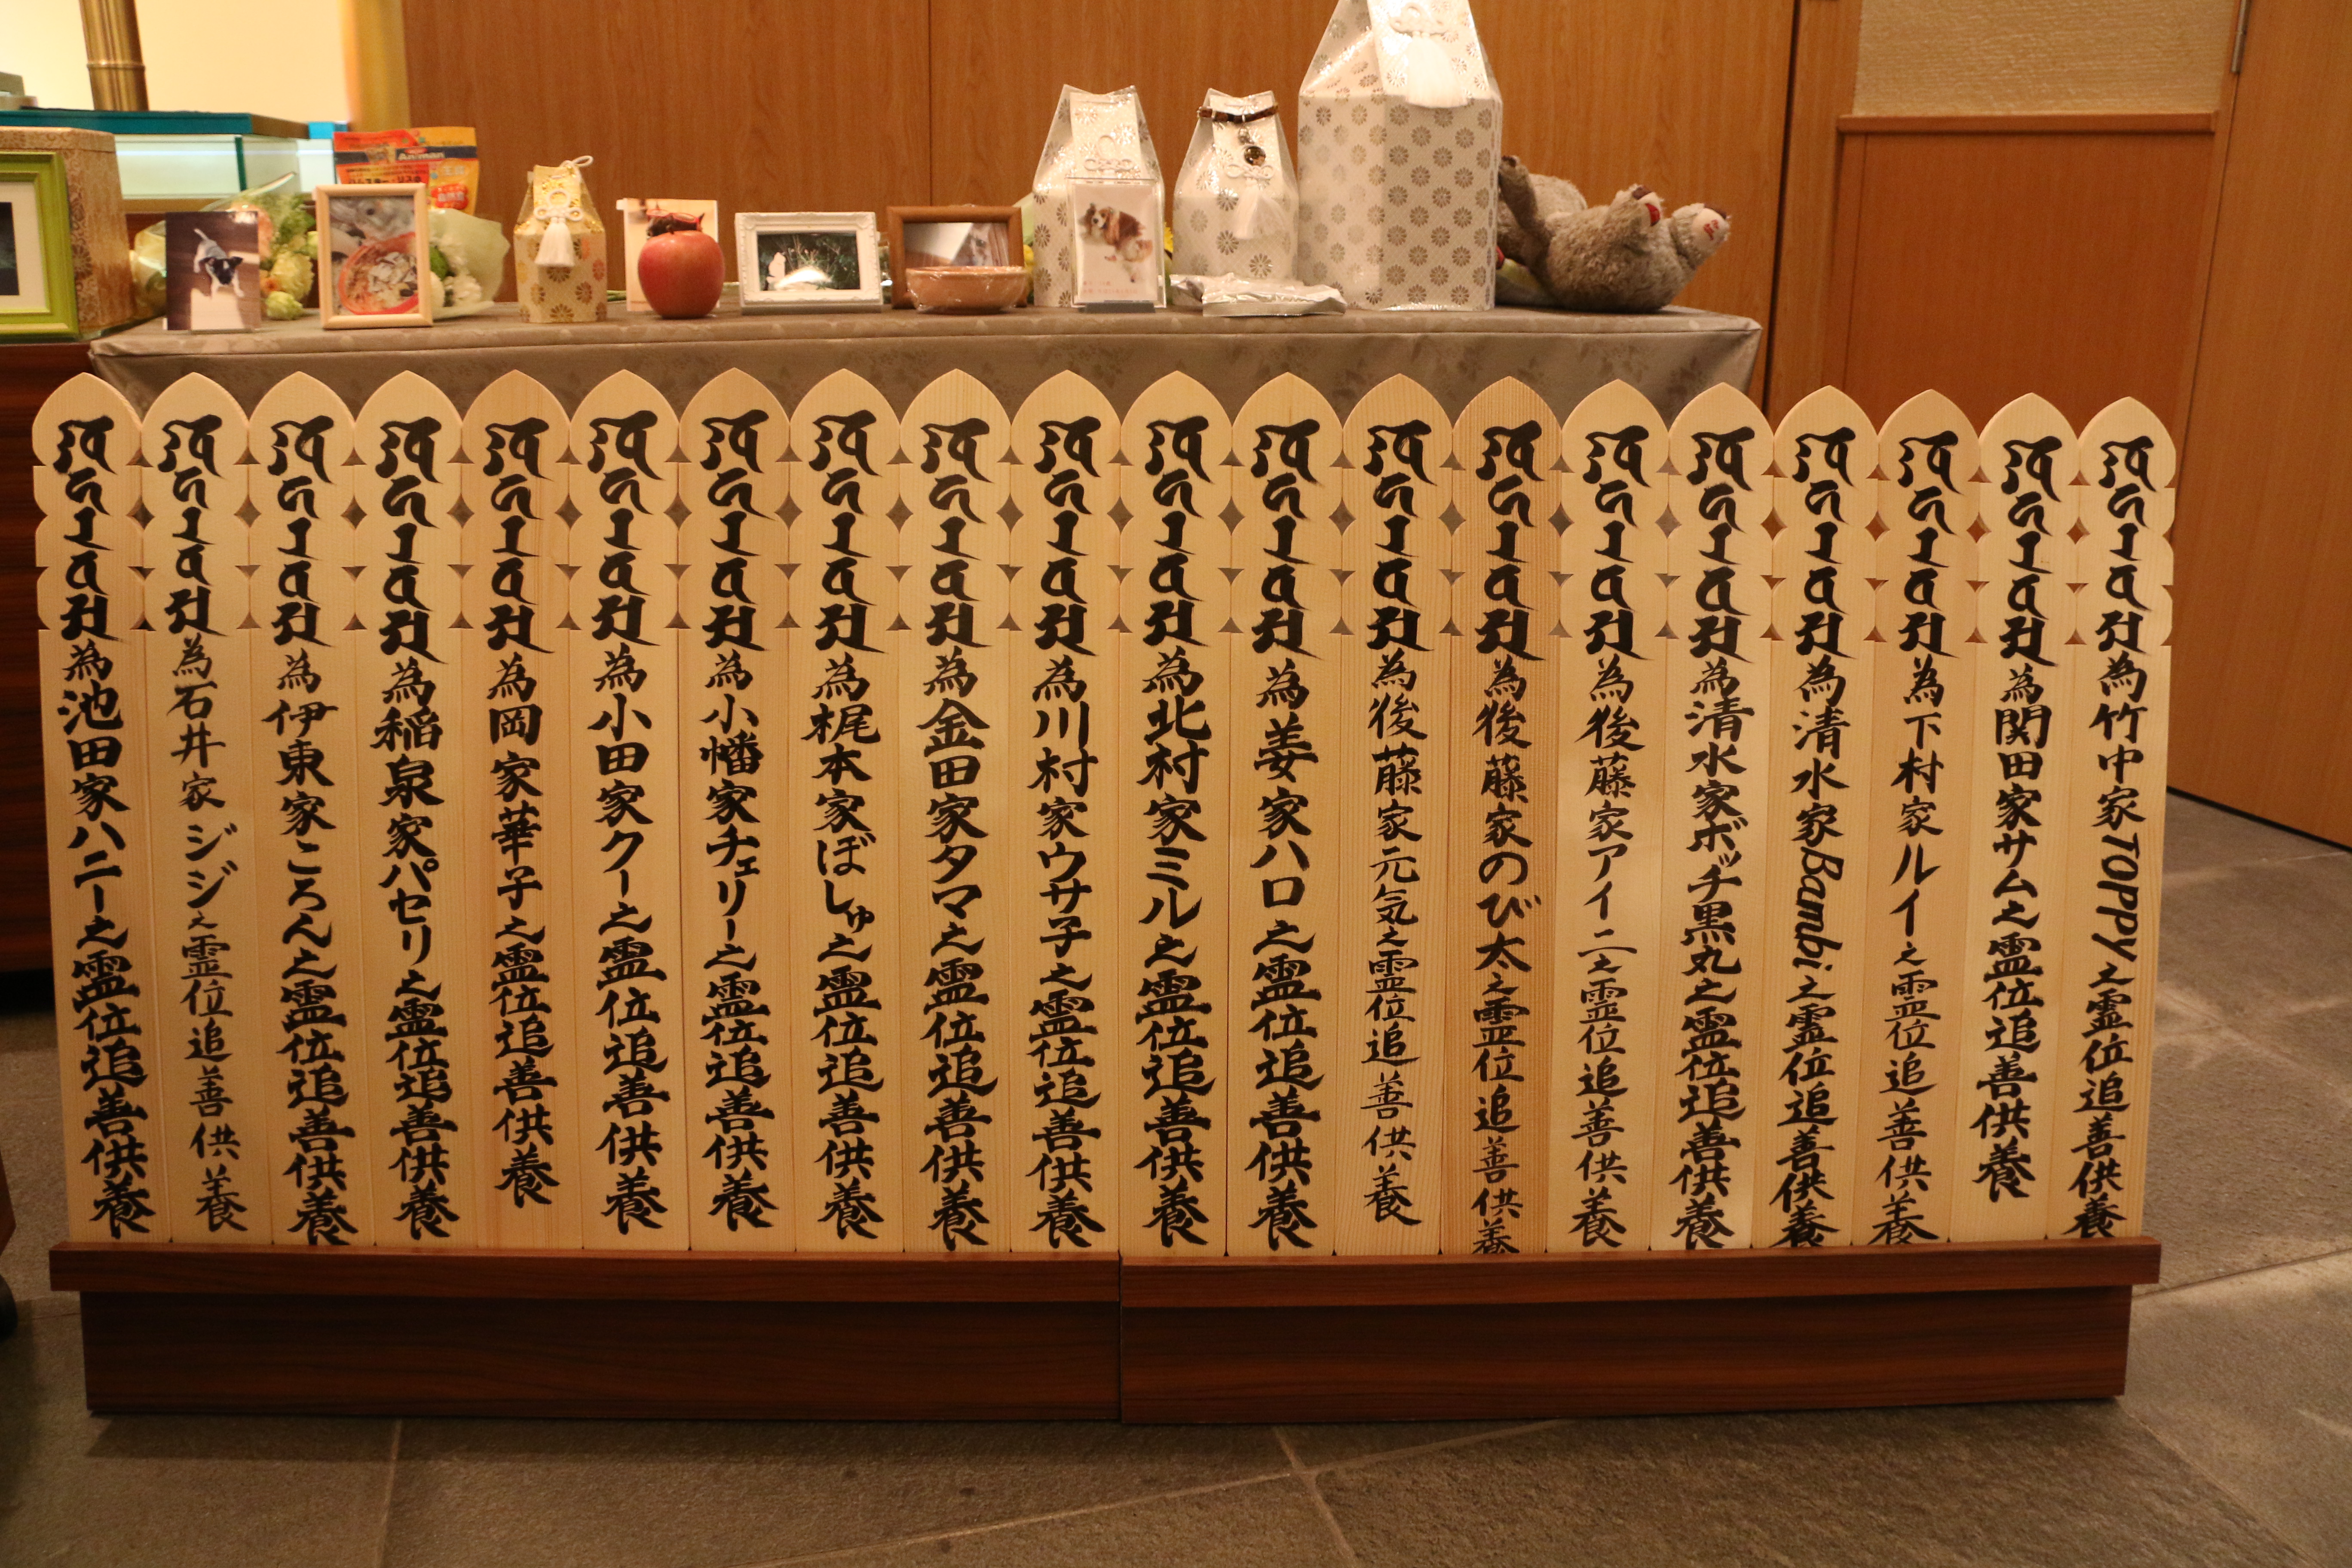 Animan
為池田家ハニー之霊位追善供養
為石井家ジジ之霊位追善供養
為伊東家ころん之霊位追善供養
為稲泉家パセリ之霊位追善供養
為岡家華子之霊位追善供養
為小田家クー之霊位追善供養
為小幡家チェリー之霊位追善供養
為梶本家ぼしゅ之霊位追善供養
為金田家タマ之霊位追善供養
為川村家ウサ子之霊位追善供養
為北村家ミル之霊位追善供養
為姜家ハロ之霊位追善供養
為後藤家元気之霊位追善供養
為後藤家のび太之霊位追善供養
為後藤家アイニ之霊位追善供養
為清水家ボッチ黒丸之霊位追善供養
為清水家Bambi之霊位追善供養
為下村家ルイ之霊位追善供養
為関田家サム之霊位追善供養
為竹中家TOPPY之霊位追善供養